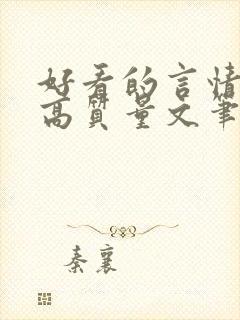 好看的言情
高质量文笔
秦襄